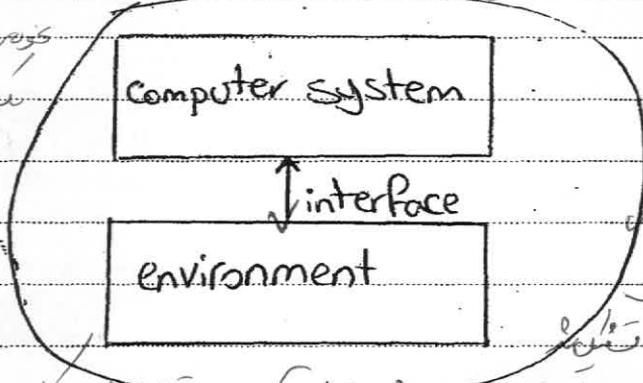 computer system
interface
environment